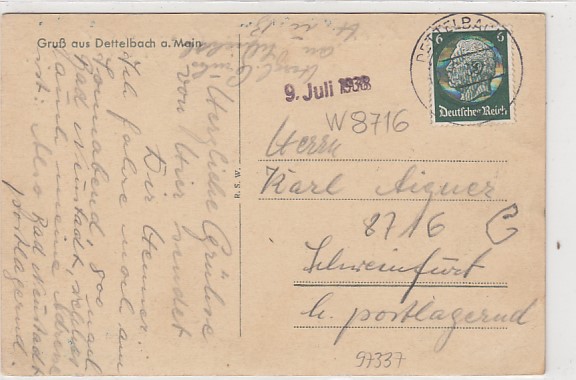 Gruß aus Dettelbach a. Main
Herzliche Grüße
von hier sendet
Dir
Ich fahre noch am
Sonnabend 8oo nach
Bad Neustadt,
meine Adresse
ist: Also Bad Neustadt
postlagernd.
R. S. W.
9. Juli 1938
DETTELBACH
6 6
Deutsches Reich
W 8716
Herrn
Karl Aigner
8716
Schweinfurt
h. postlagernd
97337